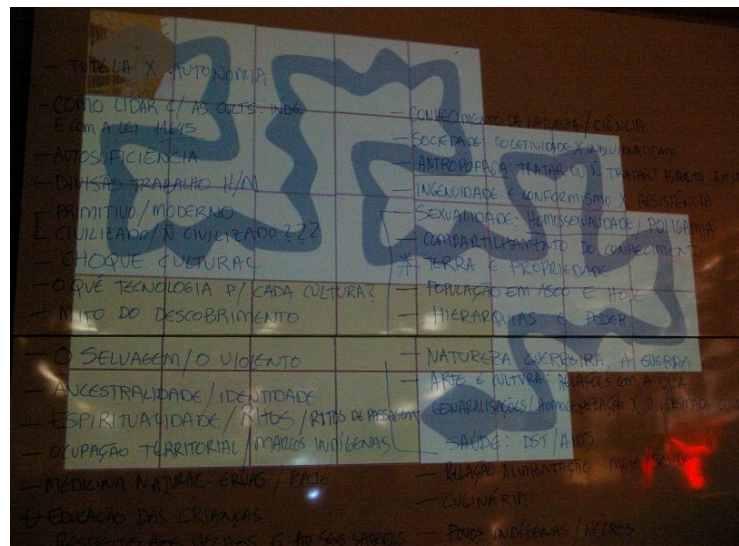 — TUTELA X AUTONOMIA
— COMO LIDAR C/ AS CULTS. INDG.
E COM A LEI 11625
— AUTOSUFICIÊNCIA
— DIVISÃO TRABALHO H/M
PRIMITIVO/MODERNO
CIVILIZADO/Ñ CIVILIZADO???
— CHOQUE CULTURAL
— O QUÊ TECNOLOGIA P/ CADA CULTURA?
— MITO DO DESCOBRIMENTO
— O SELVAGEM/O VIOLENTO
— ANCESTRALIDADE/IDENTIDADE
— ESPIRITUALIDADE/RITOS/RITOS DE PASSAGEM
— OCUPAÇÃO TERRITORIAL/MARCOS INDÍGENAS
— MEDICINA NATURAL-ERVAS/PAJÉ
— EDUCAÇÃO DAS CRIANÇAS
SEUS SABERES
— CONHECIMENTO DE NATUREZA/CIÊNCIA
— SOCIEDADE: COLETIVIDADE X INDIVIDUALIDADE
— ANTROPOFAGIA TRATAR OU Ñ TRATAR? ASPECTO
— INGENUIDADE E CONFORMISMO X RESISTÊNCIA
— SEXUALIDADE: HOMOSSEXUALIDADE/POLIGAMIA
— COMPARTILHAMENTO DO CONHECIMENTO
* TERRA E PROPRIEDADE
— POPULAÇÃO EM 1500 E HOJE
— HIERARQUIAS E PODER
— NATUREZA GUERREIRA, A GUERRA
— ARTE E CULTURA: RELAÇÕES COM A VIDA
GENARALISAÇÕES/HOMOGENEIZAÇÃO X DIVERSIDADE
— SAÚDE: DST/AIDS
— RELAÇÃO ALIMENTAÇÃO MEIO/
— CULINÁRIA
— POVOS INDÍGENAS/NEGROS